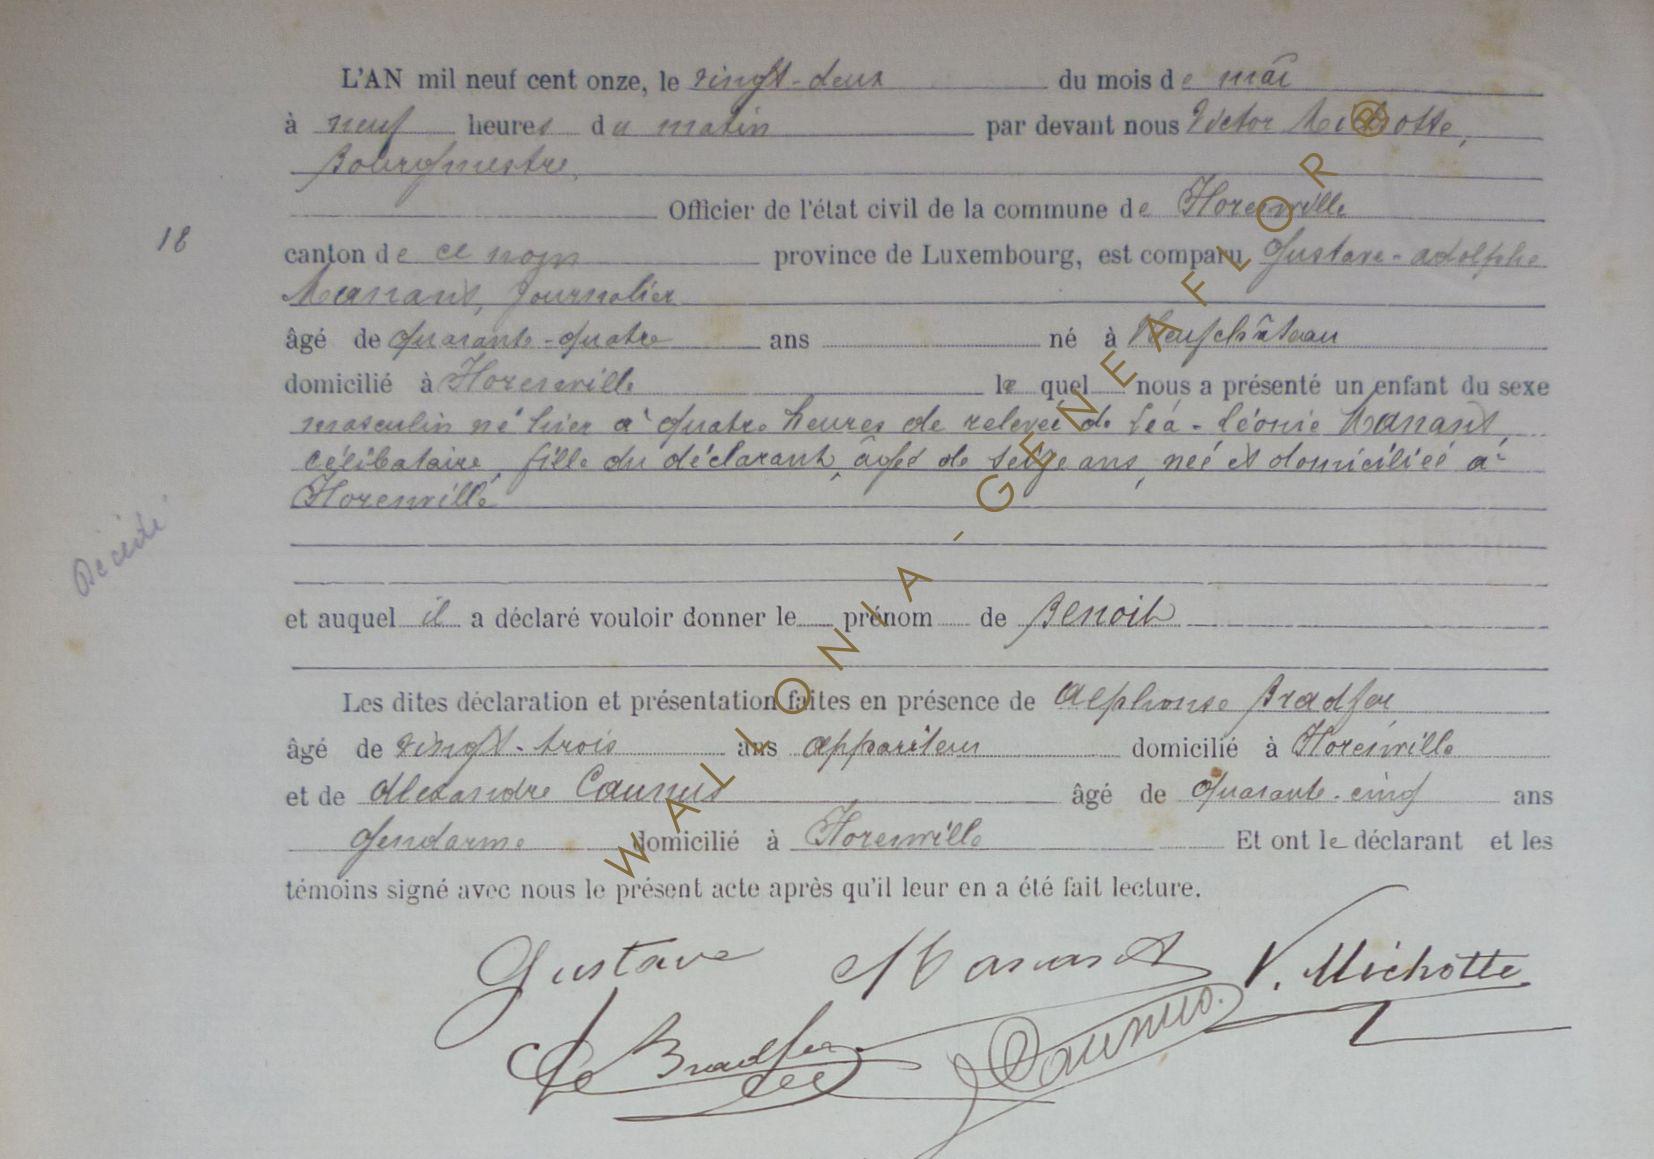 L'AN mil neuf cent onze, le vingt-deux du mois de mai
à neuf heures du matin par devant nous Victor Michotte,
Bourgmestre,
Officier de l'état civil de la commune de Florenville
18
canton de ce nom province de Luxembourg, est comparu Gustave-Adolphe
Manand, journalier
âgé de quarante-quatre ans né à Neufchâteau
domicilié à Florenville lequel nous a présenté un enfant du sexe
masculin né hier à quatre heures de relevée de Léa-Léonie Manand,
célibataire, fille du déclarant, âgée de seize ans, née et domiciliée à
Florenville
Décédé
et auquel il a déclaré vouloir donner le prénom de Benoit
Les dites déclaration et présentation faites en présence de Alphonse Bradfer,
âgé de vingt-trois ans appariteur domicilié à Florenville
et de Alexandre âgé de quarante-cinq ans
gendarme domicilié à Florenville Et ont le déclarant et les
témoins signé avec nous le présent acte après qu'il leur en a été fait lecture.
Gustave Manand V. Michotte
Bradfer
WALLONIA - GENEAFLOR ®